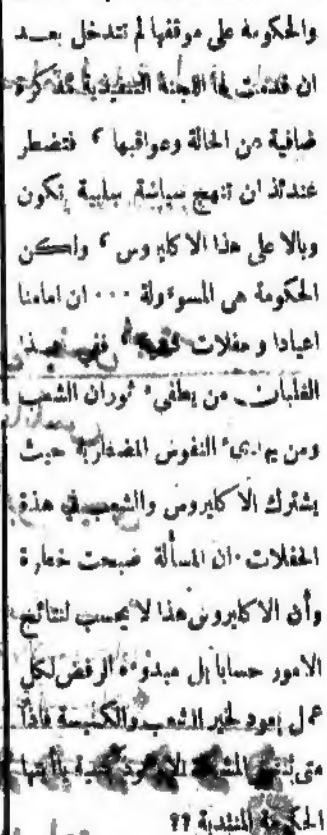 والحكومة على موقفها لم تتدخل بعد
ان قدمت لها اللجنة التنفيذية مذكرة
ضافية من الحالة وعواقبها فتضطر
عندئذ ان تنهج سياسة سلبية تكون
وبالا على هذا الاكليروس ولكن
الحكومة هي المسوءولة ... ان امامنا
اعيادا وحفلات ففي هذا
الغليان من يطفىء ثوران الشعب
ومن يهدىء النفوس المضطربة حيث
يشترك الاكليروس والشعب في هذه
الحفلات . ان المسألة ضبحت خطرة
وأن الاكليروس هذا لا يحسب لنتائج
الامور حسابا بل مبدوءه الرفض لكل
عمل يعود لخير الشعب والكنيسة فاذا
متى
الحكومة المنتدبة ??